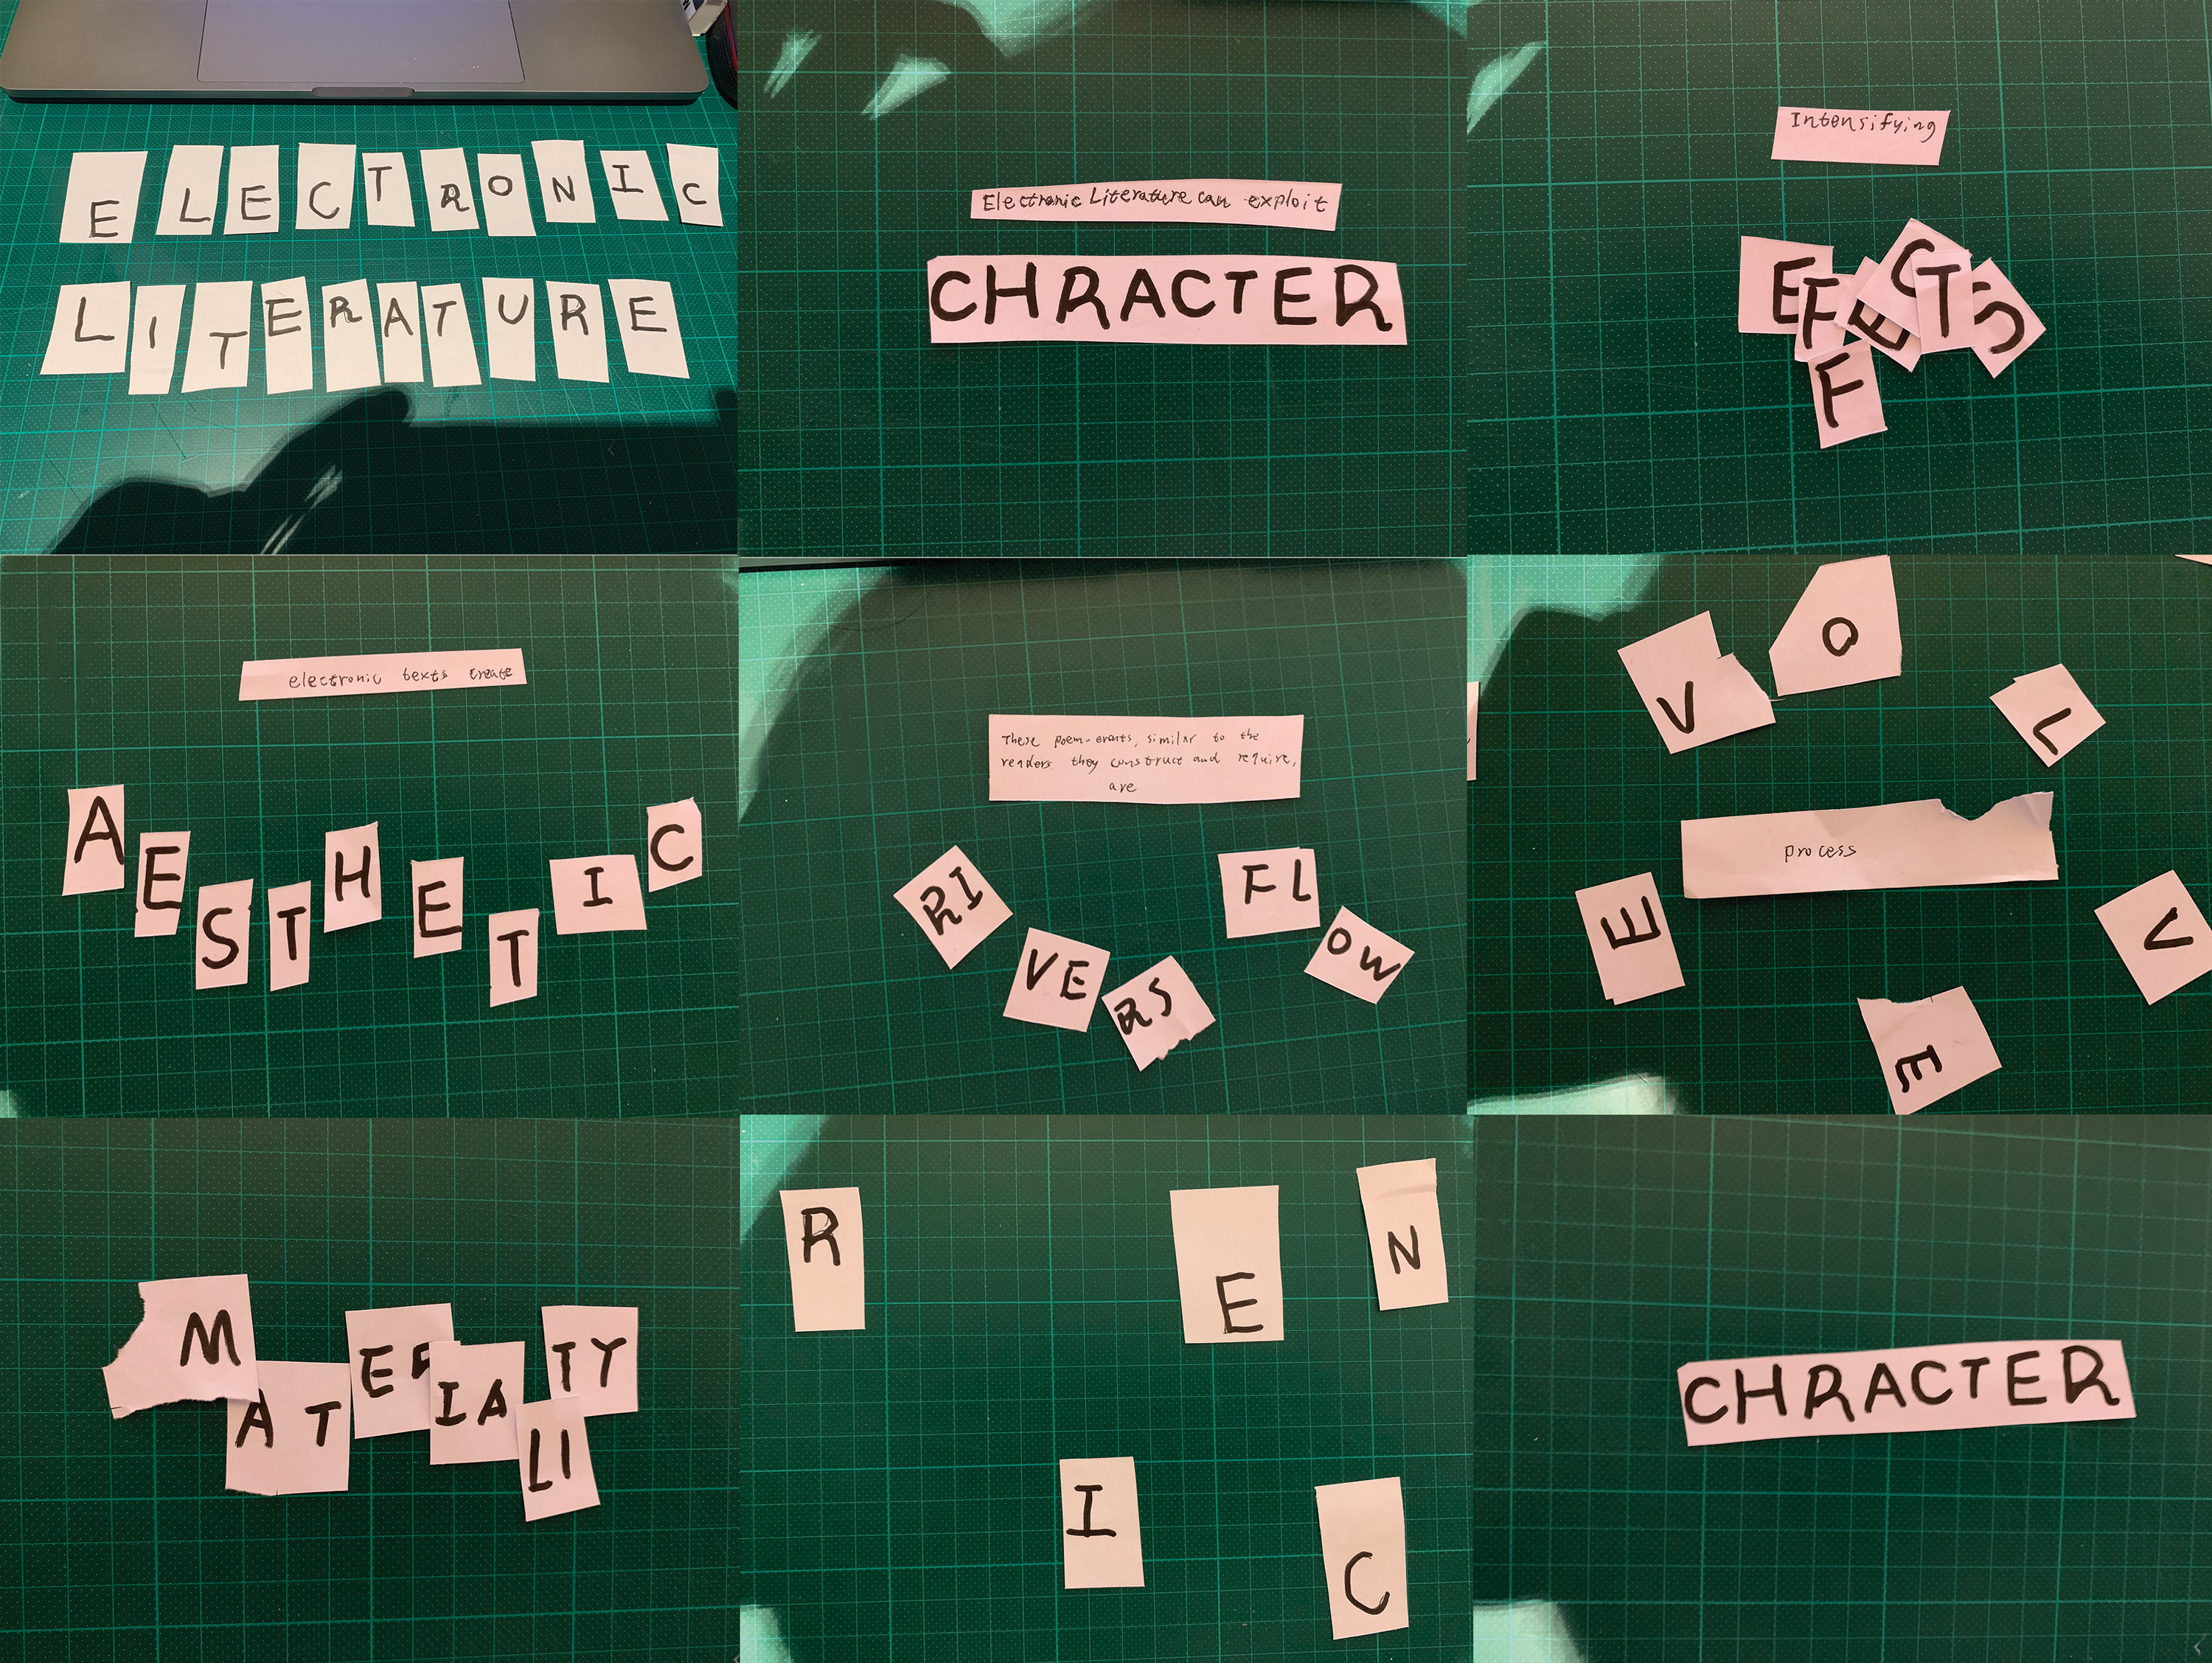 ELECTRONIC
LITERATURE
Electronic Literature can exploit
CHRACTER
Intensifying
EFFECTS
electronic texts create
AESTHETIC
These poem-events, similar to the
readers they construct and require,
are
RIVERS FLOW
EVOLVE
process
MATERIALITY
R E N
I C
CHRACTER